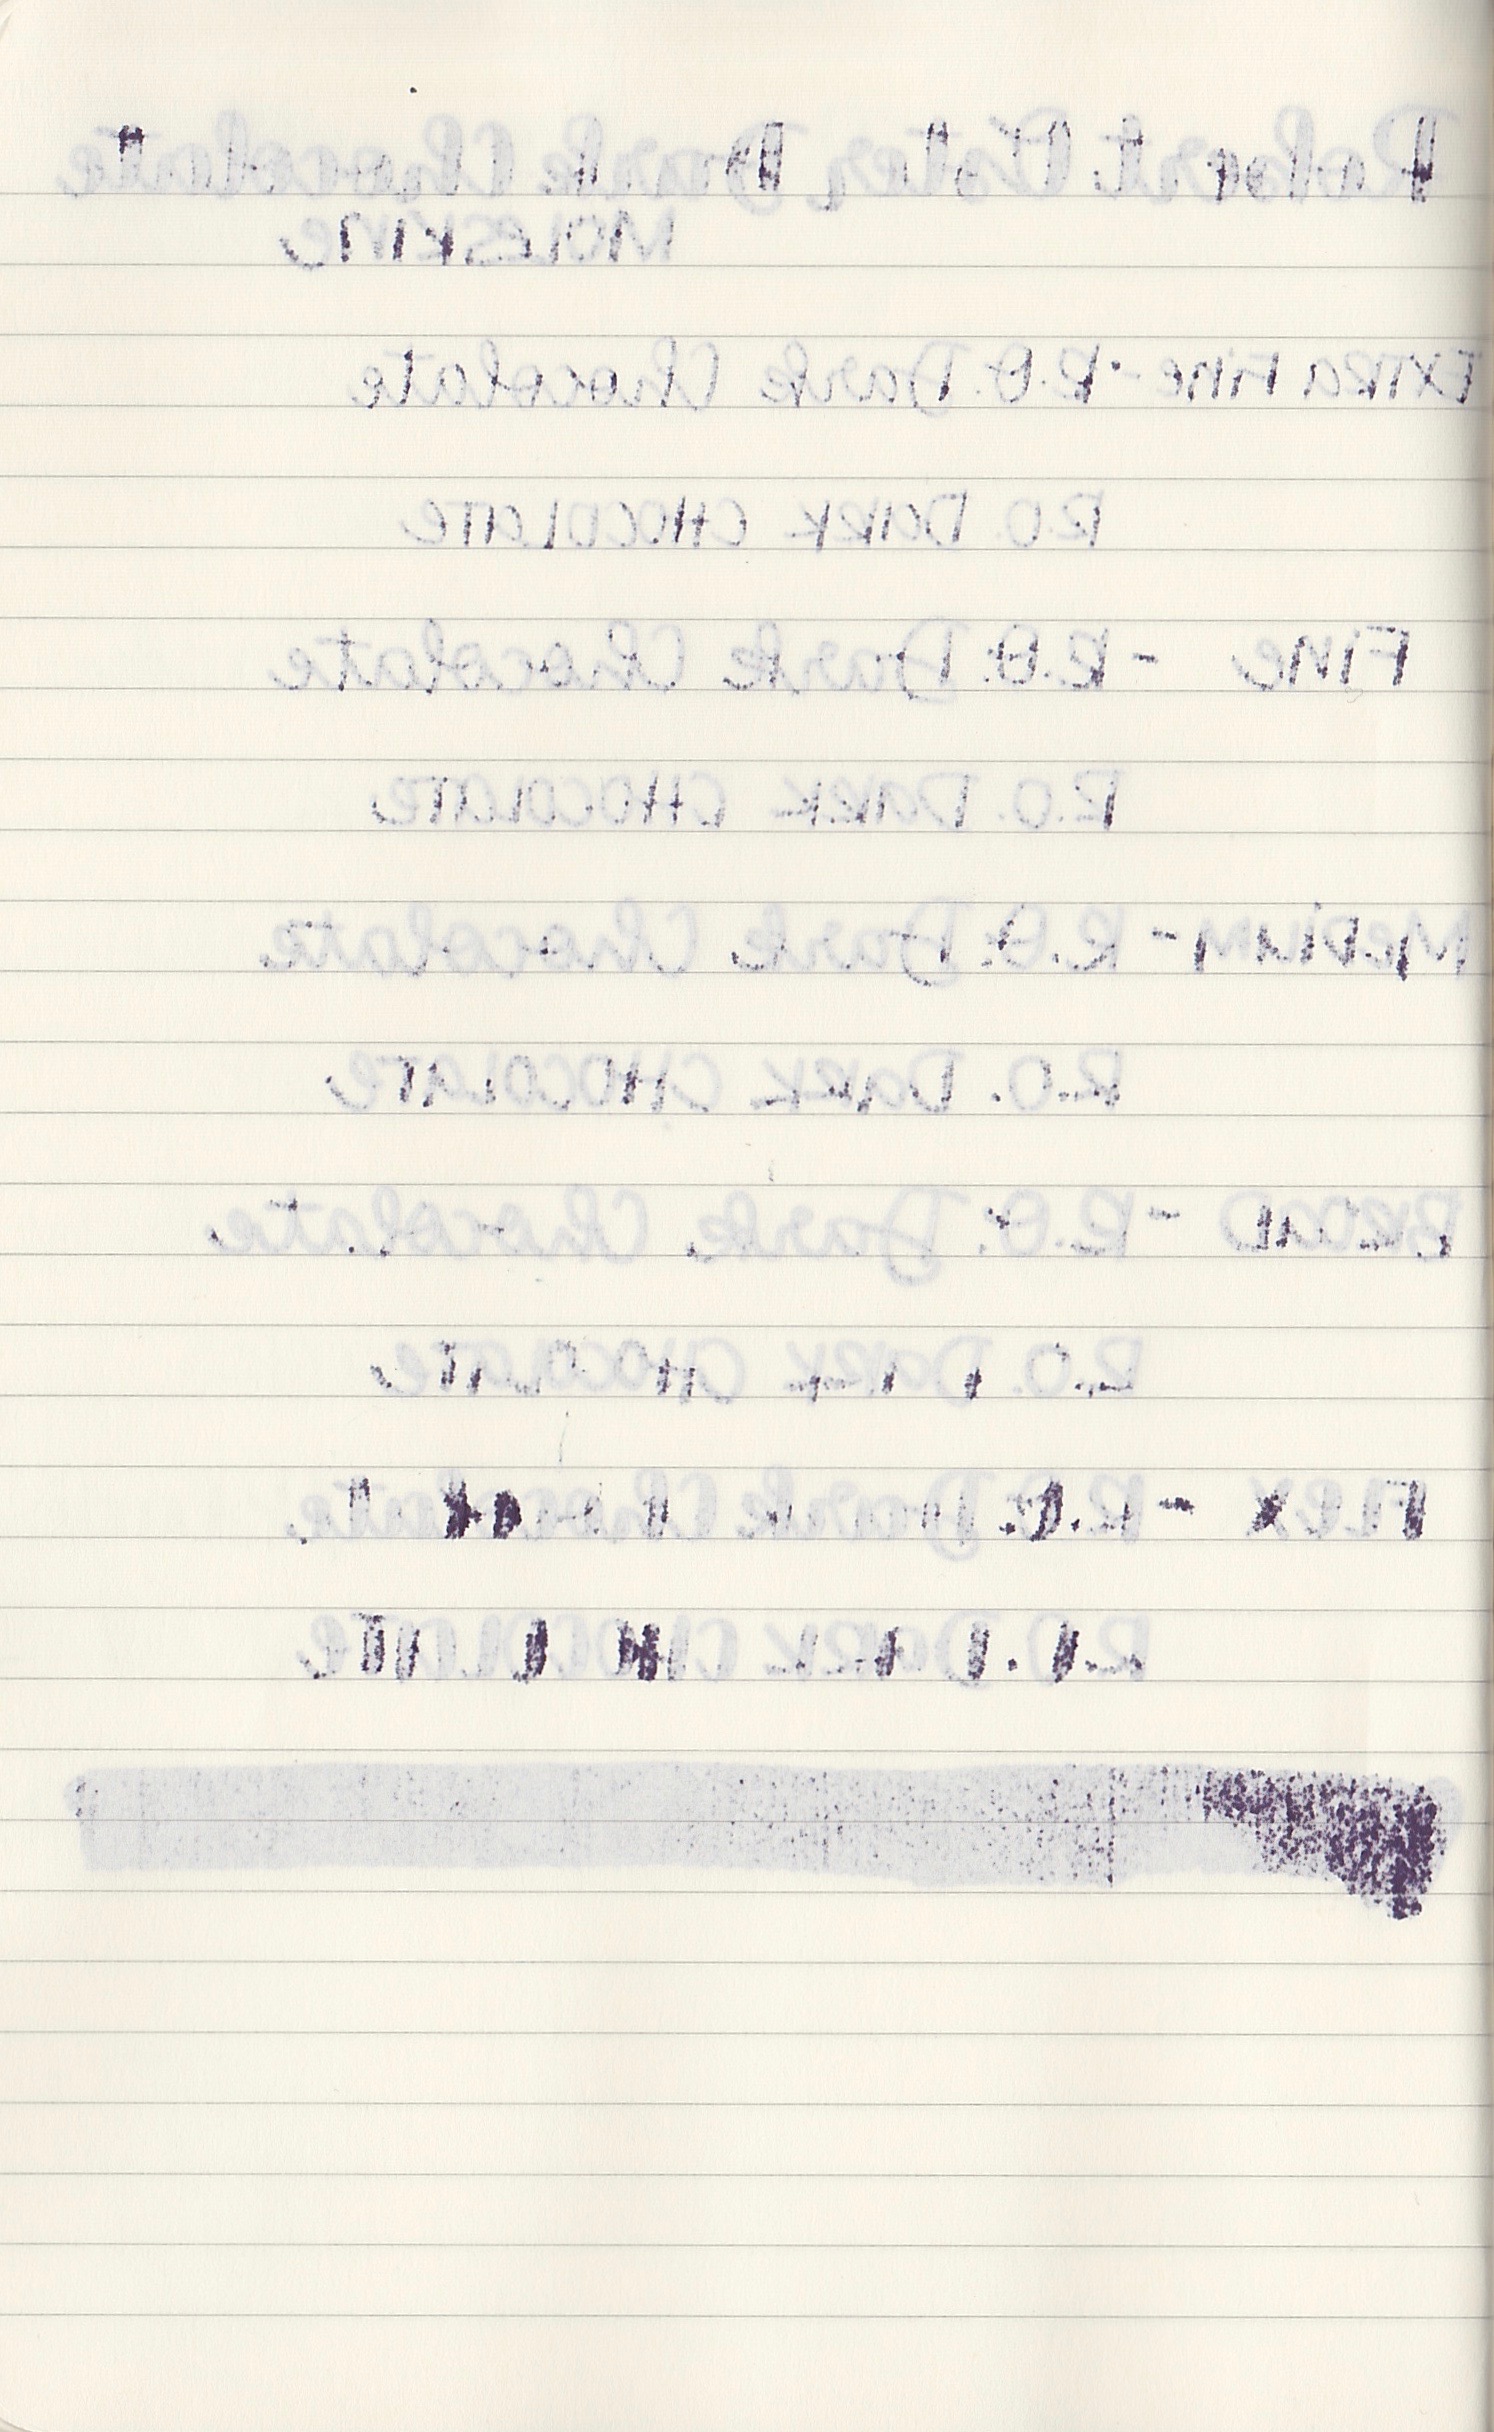 Robert Oster Dark Chocolate
MOLESKINE
EXTRA FINE - R.O. Dark Chocolate
R.O. DARK CHOCOLATE
FINE - R.O. Dark Chocolate
R.O. DARK CHOCOLATE
MEDIUM - R.O. Dark Chocolate
R.O. DARK CHOCOLATE
BROAD - R.O. Dark Chocolate
R.O. DARK CHOCOLATE
FLEX - R.O. Dark Chocolate
R.O. DARK CHOCOLATE